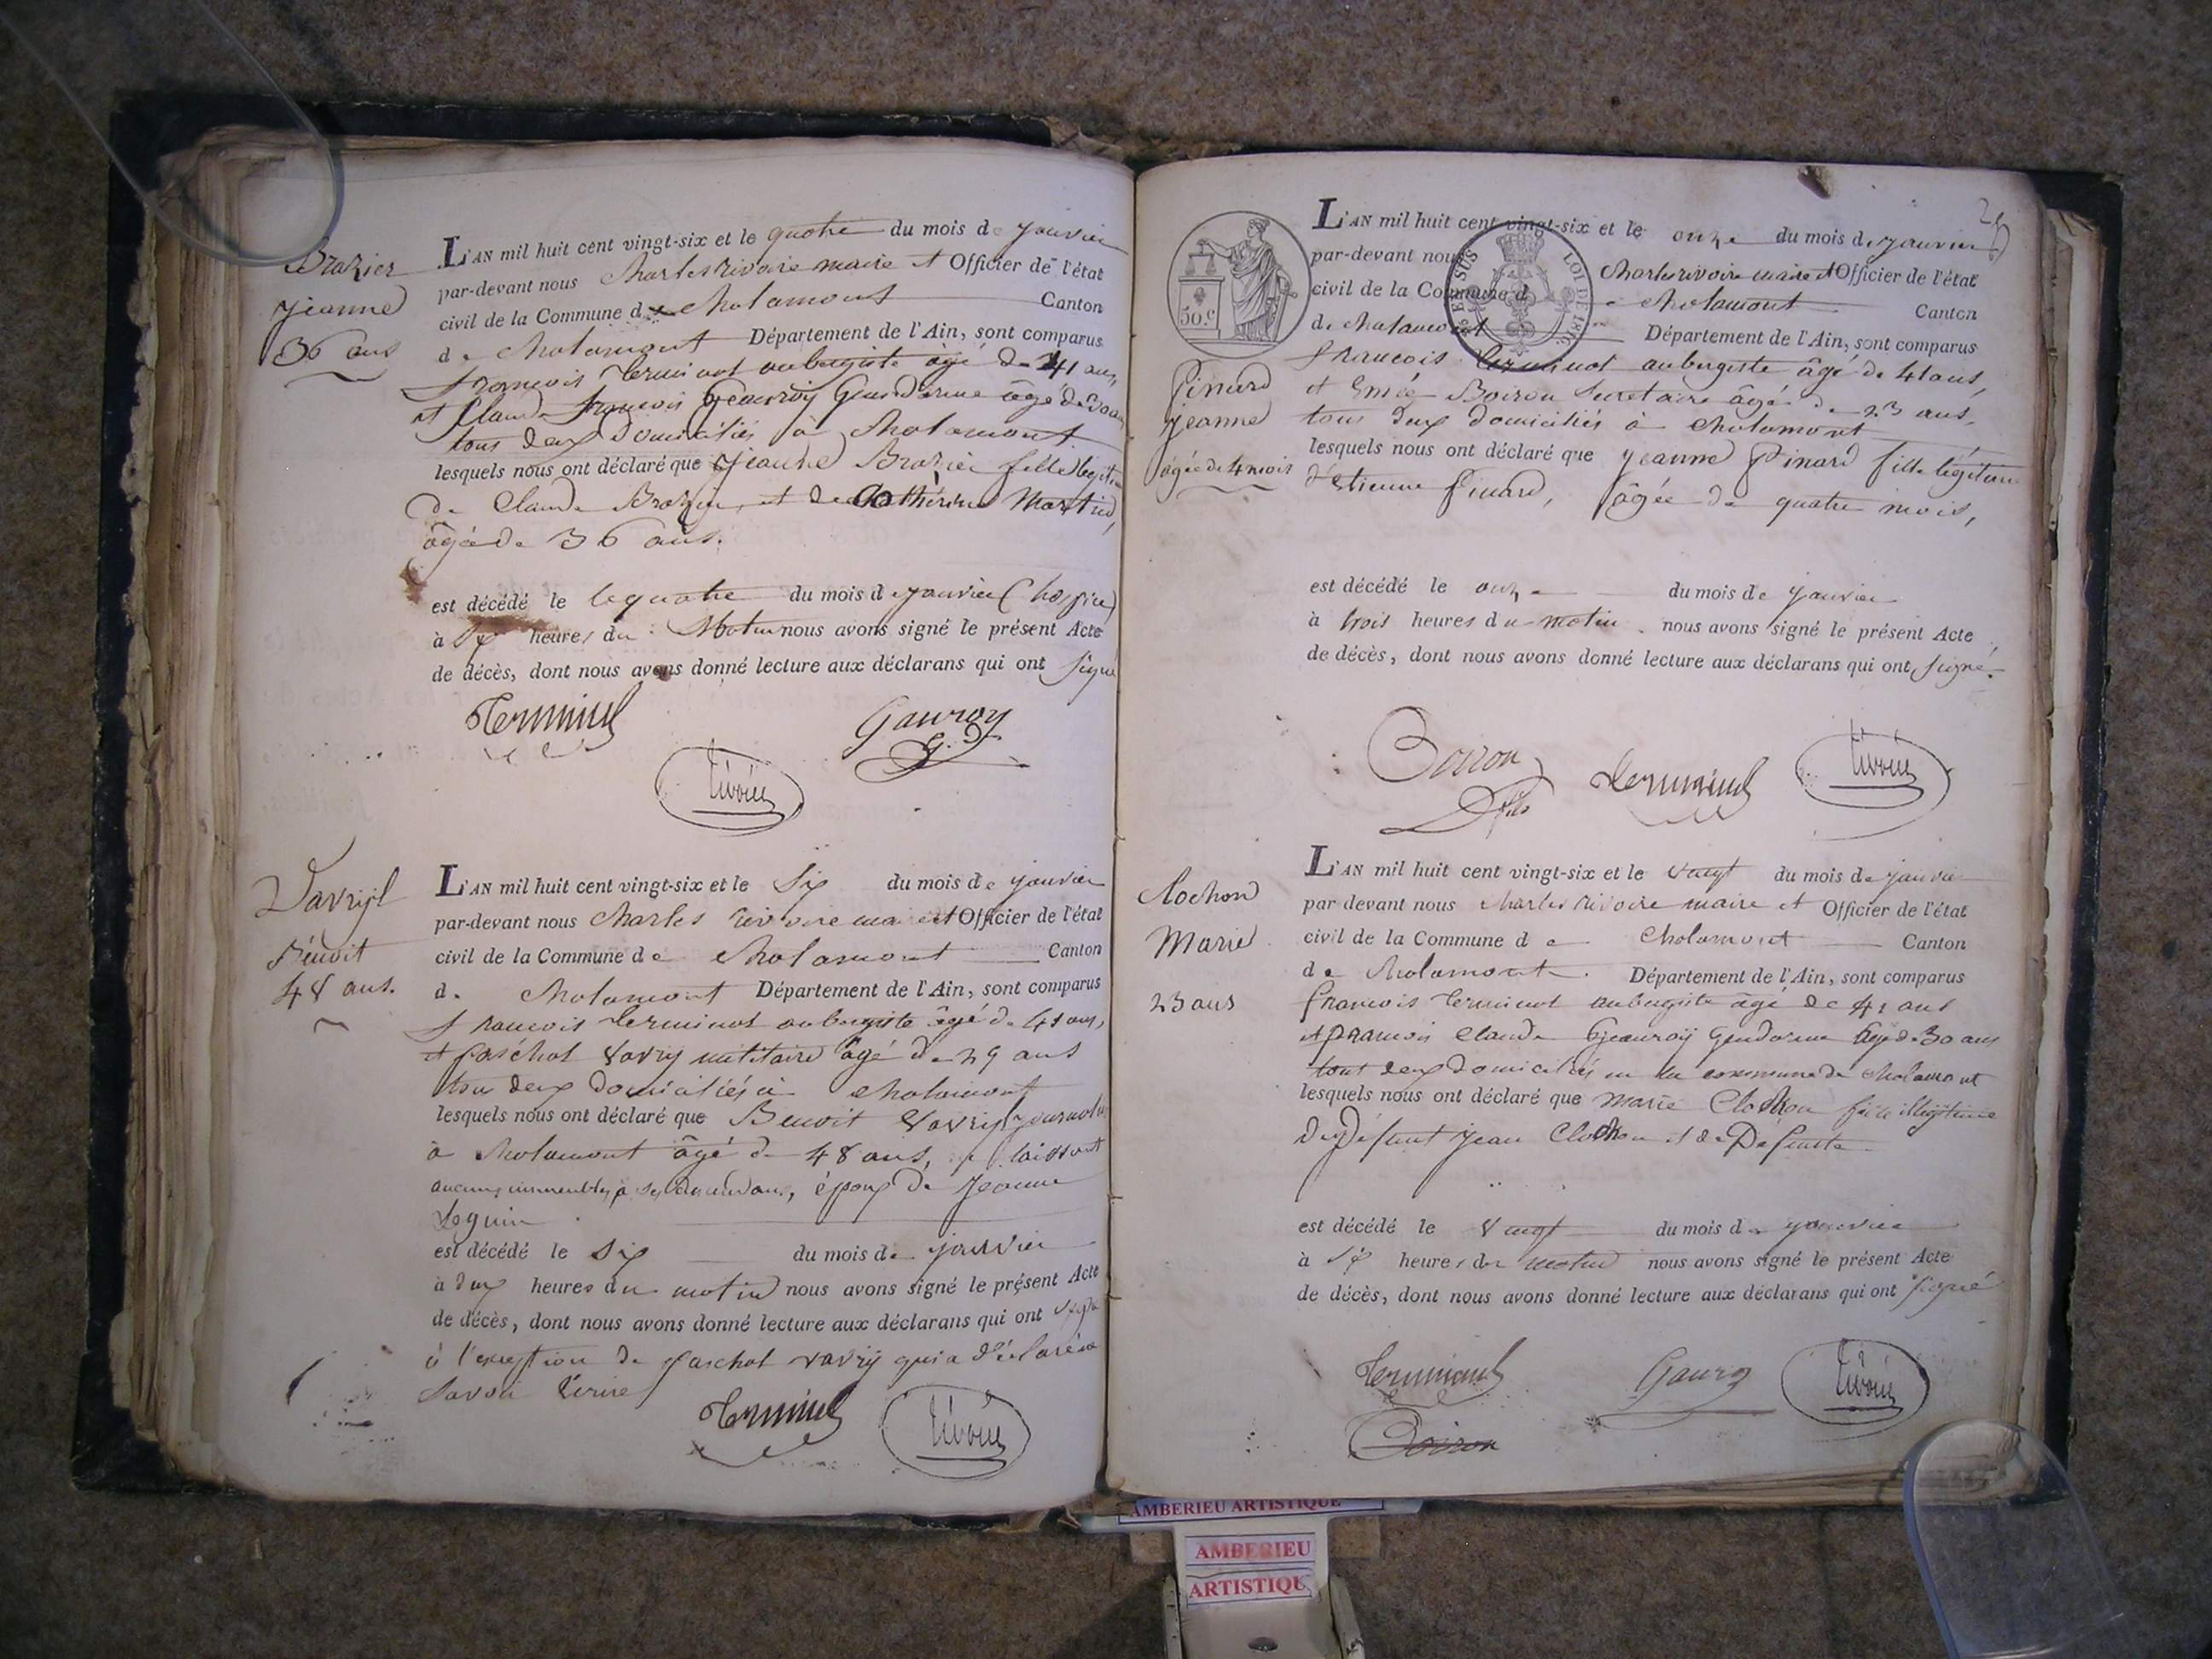 Brazier
Jeanne
36 ans
L'AN mil huit cent vingt-six et le quatre du mois de janvier
par-devant nous Charles rivoire maire et Officier de l'état
civil de la Commune de chalamont Canton
de chalamont Département de l'Ain, sont comparus
françois terminot aubergiste âgé de 41 ans,
et Claude françois Geauroÿ Gendarme âgé de 30 ans
tous deux domiciliés à chalamont
lesquels nous ont déclaré que jeanne Brazier fille légit
de Claude Brazier, et de Cathérine Martin,
âgé de 36 ans.
est décédé le le quatre du mois de janvier (hospice)
à six heures du Matin nous avons signé le présent Acte
de décès, dont nous avons donné lecture aux déclarans qui ont signé
Terminot
Gauroy
G. D.
Rivoire
Vavry
Benoit
48 ans.
L'AN mil huit cent vingt-six et le Six du mois de janvier
par-devant nous Charles rivoire maire et Officier de l'état
civil de la Commune de chalamont Canton
de chalamont Département de l'Ain, sont comparus
françois terminot aubergiste âgé de 41 ans,
et paschal vavry militaire âgé de 29 ans
tous deux domiciliés à chalamont
lesquels nous ont déclaré que Benoit Vavry journalier
à chalamont âgé de 48 ans, laissant
aucuns immeubles à ses descendans, époux de Jeanne
Seguin
est décédé le Six du mois de janvier
à deux heures du matin nous avons signé le présent Acte
de décès, dont nous avons donné lecture aux déclarans qui ont signé
à l'exception de paschal vavrÿ qui a déclaré
savoir écrire
Terminot
Rivoire
25
50.c
LOI DE 1816
Pinard
jeanne
âgée de 4 mois
L'AN mil huit cent vingt-six et le onze du mois de janvier
par-devant nous Charles rivoire maire et Officier de l'état
civil de la Commune de chalamont Canton
de chalamont Département de l'Ain, sont comparus
françois terminot aubergiste âgé de 41 ans,
et Emée Boiron Secretaire âgé de 23 ans,
tous deux domiciliés à chalamont
lesquels nous ont déclaré que jeanne Pinard fille légitime
d'Etienne Pinard, âgée de quatre mois,
est décédé le onze du mois de janvier
à trois heures du matin nous avons signé le présent Acte
de décès, dont nous avons donné lecture aux déclarans qui ont signé.
Boiron
fils
Terminot
Rivoire
Clochon
Marie
23 ans
L'AN mil huit cent vingt-six et le vingt du mois de janvier
par devant nous Charles rivoire maire et Officier de l'état
civil de la Commune de chalamont Canton
de chalamont Département de l'Ain, sont comparus
françois terminot aubergiste âgé de 41 ans
et françois Claude Geauroÿ Gendarme âgé de 30 ans
tous deux domiciliés en la commune de chalamont
lesquels nous ont déclaré que marie Clochon fille illégitime
de défunt jean Clochon et de Défunte
est décédé le vingt du mois de janvier
à six heures du matin nous avons signé le présent Acte
de décès, dont nous avons donné lecture aux déclarans qui ont signé
Terminot
Gauroy
Rivoire
Boiron
AMBERIEU ARTISTIQUE
AMBERIEU
ARTISTIQU